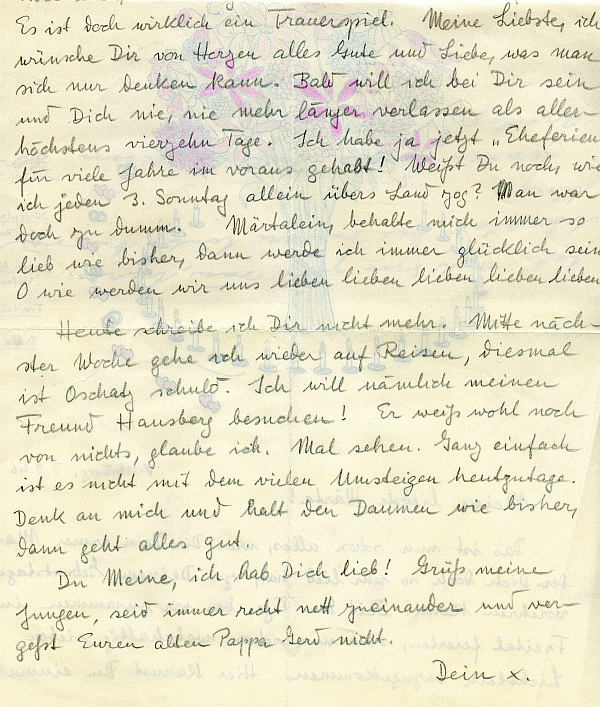 Es ist doch wirklich ein Trauerspiel. Meine Liebste, ich
wünsche Dir von Herzen alles Gute und Liebe, was man
sich nur denken kann. Bald will ich bei Dir sein
und Dich nie, nie mehr länger verlassen als aller-
höchstens vierzehn Tage. Ich habe ja jetzt „Eheferien
für viele Jahre im voraus gehabt! Weißt Du noch, wie
ich jeden 3. Sonntag allein übers Land zog? Man war
doch zu dumm. Märtalein, behalte mich immer so
lieb wie bisher, dann werde ich immer glücklich sein
O wie werden wir uns lieben lieben lieben lieben lieben
Heute schreibe ich Dir nicht mehr. Mitte näch-
ster Woche gehe ich wieder auf Reisen, diesmal
ist Oschatz schuld. Ich will nämlich meinen
Freund Hausberg besuchen! Er weiß wohl noch
von nichts, glaube ich. Mal sehen. Ganz einfach
ist es nicht mit dem vielen Umsteigen heutzutage.
Denk an mich und halt den Daumen wie bisher,
dann geht alles gut.
Du Meine, ich hab Dich lieb! Grüß meine
Jungen, seid immer recht nett zueinander und ver-
geßt Euren alten Pappa Gerd nicht.
Dein x.